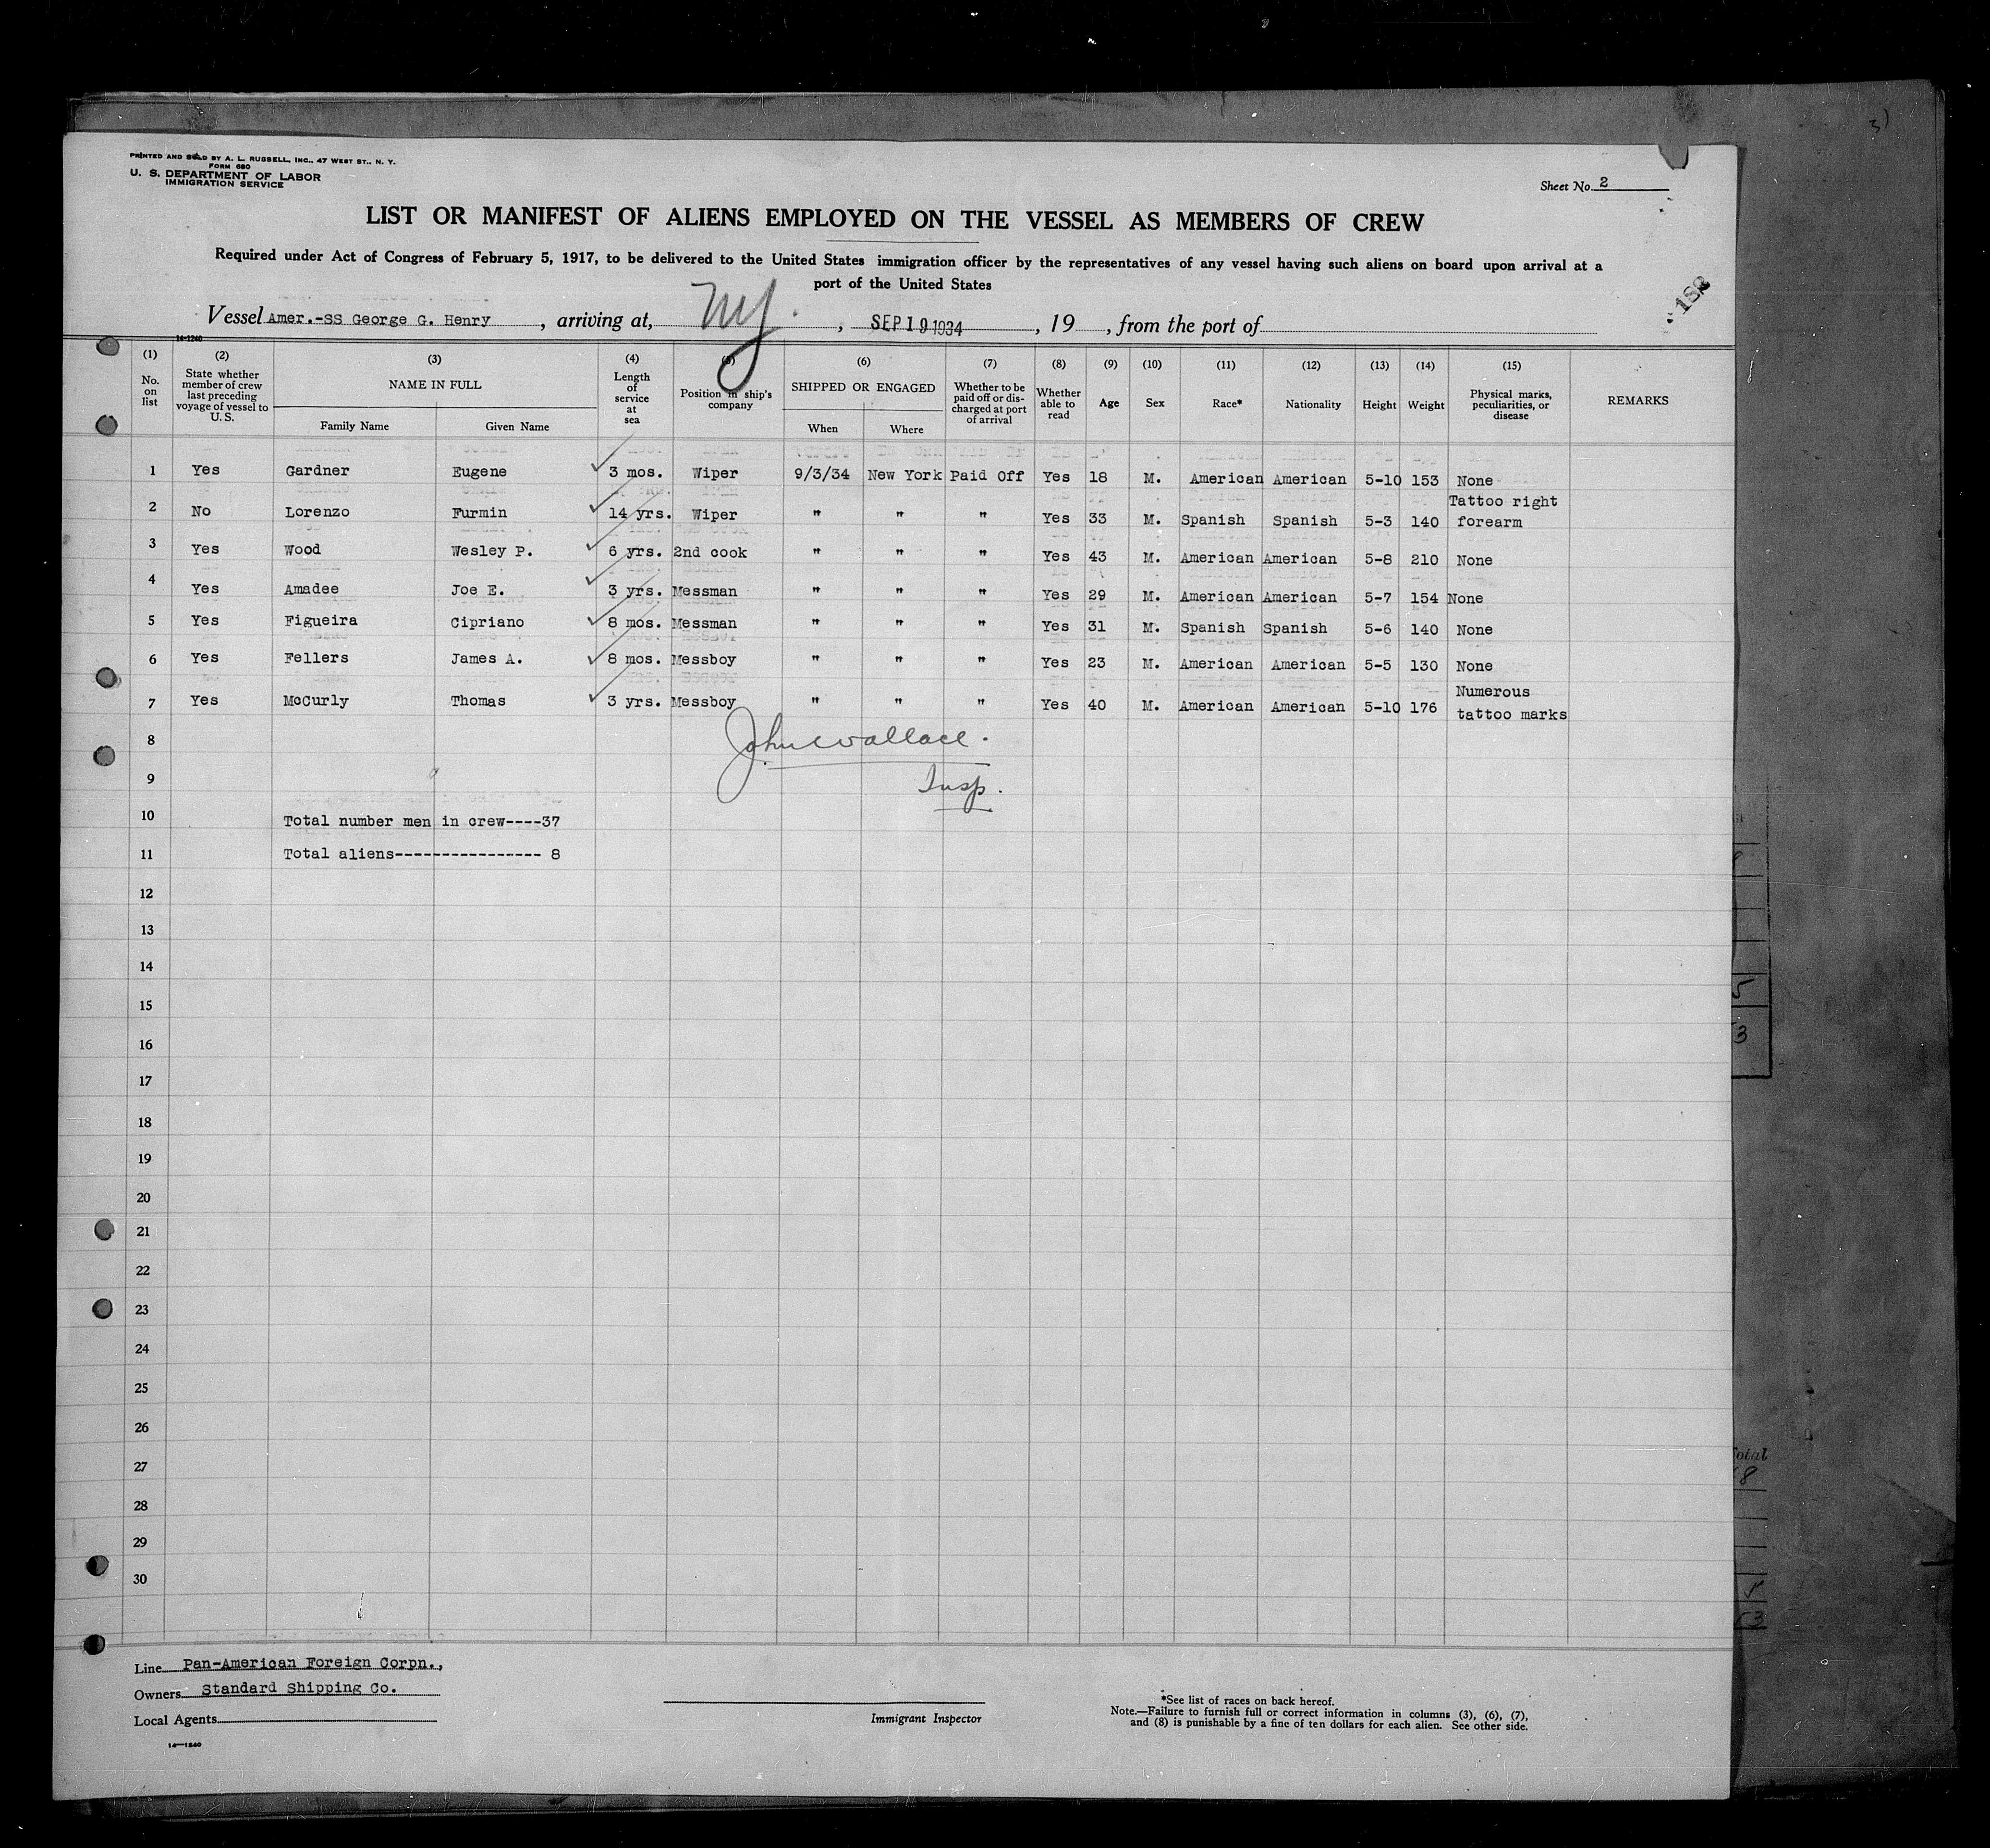 PRINTED AND SOLD BY A. L. RUSSELL, INC., 47 WEST ST., N. Y.
FORM 680
U. S. DEPARTMENT OF LABOR
IMMIGRATION SERVICE
Sheet No. 2
LIST OR MANIFEST OF ALIENS EMPLOYED ON THE VESSEL AS MEMBERS OF CREW
Required under Act of Congress of February 5, 1917, to be delivered to the United States immigration officer by the representatives of any vessel having such aliens on board upon arrival at a
port of the United States
182
Vessel Amer.-SS George G. Henry, arriving at, NY., SEP 19 1934, 19, from the port of
14-1240
(1) (2) (3) (4) (5) (6) (7) (8) (9) (10) (11) (12) (13) (14) (15)
No. on list
State whether member of crew last preceding voyage of vessel to U. S.
NAME IN FULL
Family Name Given Name
Length of service at sea
Position in ship's company
SHIPPED OR ENGAGED
When Where
Whether to be paid off or discharged at port of arrival
Whether able to read
Age
Sex
Race*
Nationality
Height
Weight
Physical marks, peculiarities, or disease
REMARKS
1 Yes Gardner Eugene 3 mos. Wiper 9/3/34 New York Paid Off Yes 18 M. American American 5-10 153 None
2 No Lorenzo Furmin 14 yrs. Wiper " " " Yes 33 M. Spanish Spanish 5-3 140 Tattoo right forearm
3 Yes Wood Wesley P. 6 yrs. 2nd cook " " " Yes 43 M. American American 5-8 210 None
4 Yes Amadee Joe E. 3 yrs. Messman " " " Yes 29 M. American American 5-7 154 None
5 Yes Figueira Cipriano 8 mos. Messman " " " Yes 31 M. Spanish Spanish 5-6 140 None
6 Yes Fellers James A. 8 mos. Messboy " " " Yes 23 M. American American 5-5 130 None
7 Yes McCurly Thomas 3 yrs. Messboy " " " Yes 40 M. American American 5-10 176 Numerous tattoo marks
8 John Wallace.
9 Insp.
10 Total number men in crew----37
11 Total aliens---------------- 8
12
13
14
15
16
17
18
19
20
21
22
23
24
25
26
27
28
29
30
Line Pan-American Foreign Corpn.,
Owners Standard Shipping Co.
Local Agents
14-1240
Immigrant Inspector
*See list of races on back hereof.
Note.—Failure to furnish full or correct information in columns (3), (6), (7),
and (8) is punishable by a fine of ten dollars for each alien. See other side.